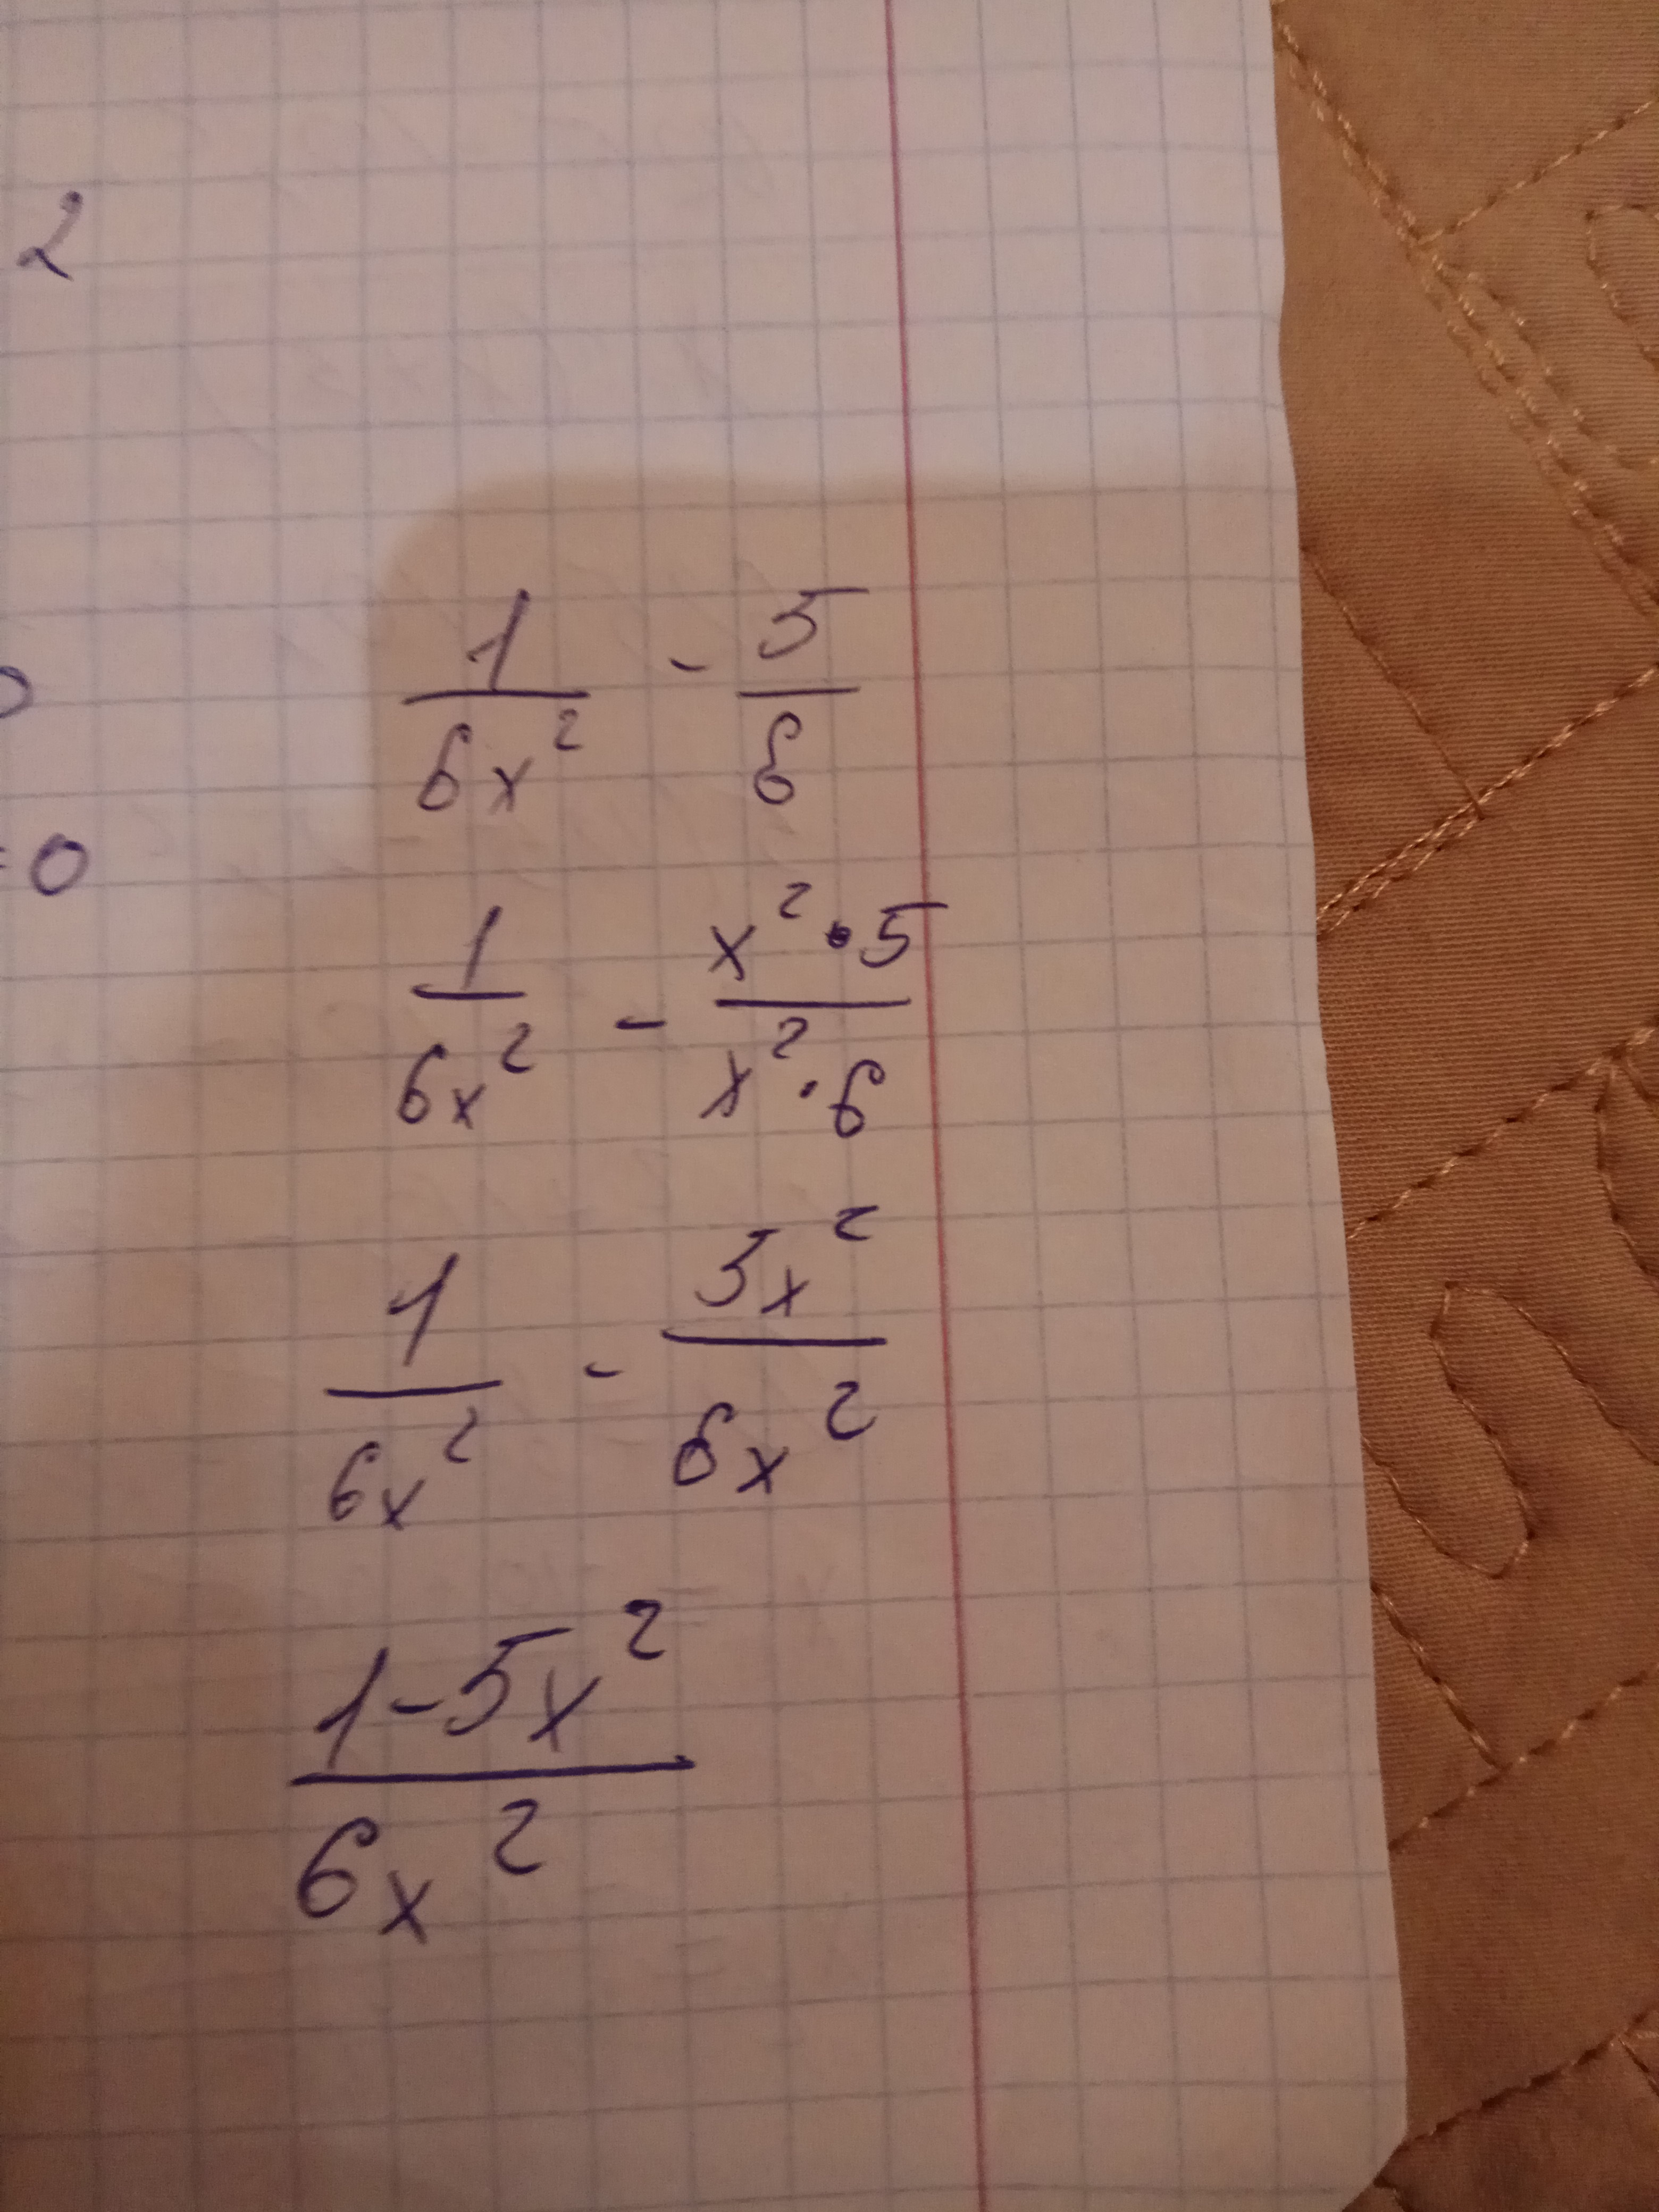 2
= 0
1/6x² - 5/6
1/6x² - x²·5/x²·6
1/6x² - 5x²/6x²
1-5x²/6x²